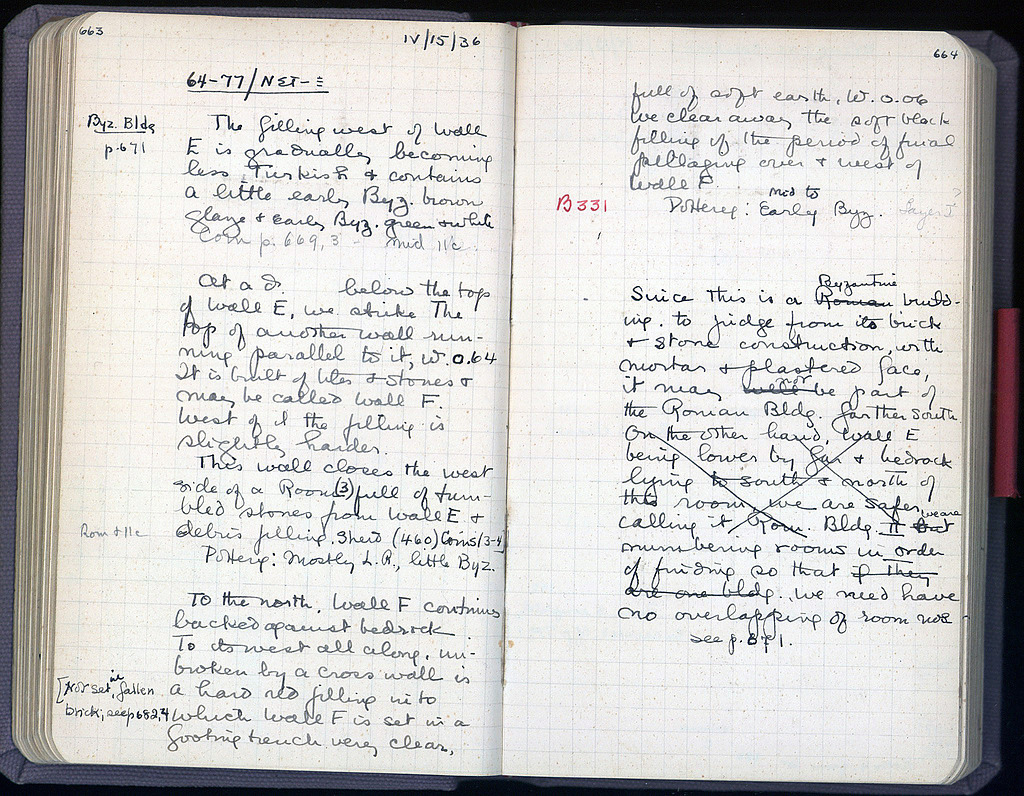 663
IV/15/36
64-77/ΝΣΤ-Ξ
Byz. Bldg
p. 671
The filling west of Wall
E is gradually becoming
less Turkish & contains
a little early Byz. brown
glaze & early Byz. green & white
Coin p. 669, 3 - mid 11c.
At a d. below the top
of Wall E, we strike The
top of another wall run-
ning parallel to it, W. 0.64
It is built of tiles & stones &
may be called Wall F.
West of it the filling is
slightly harder.
This wall closes the west
side of a Room (3) full of tum-
bled stones from Wall E &
debris filling. Sherd (460) Coins (3-4)
Rom & 11c
Pottery: Mostly L.R., little Byz.
To the north, Wall F continues
backed against bedrock
To its west all along, un-
broken by a cross wall is
a hard red filling into
which Wall F is set in a
footing trench very clear,
[not set in, fallen
brick, see p 682, 4
664
full of soft earth, W. 0.06
We clear away the soft black
filling of the period of final
pillaging over & west of
Wall F.
B331
Pottery: mid to Early Byz. Layer I ?
Since this is a Roman Byzantine build-
ing, to judge from its brick
& stone construction, with
mortar & plastered face,
it may well not be part of
the Roman Bldg. farther south.
On the other hand, Wall E
being lower by far & bedrock
lying to south & north of
this room, we are safer
calling it Rom. Bldg. II but we are
numbering rooms in order
of finding so that if they
are one bldg., we need have
no overlapping of room nos
see p. 671.